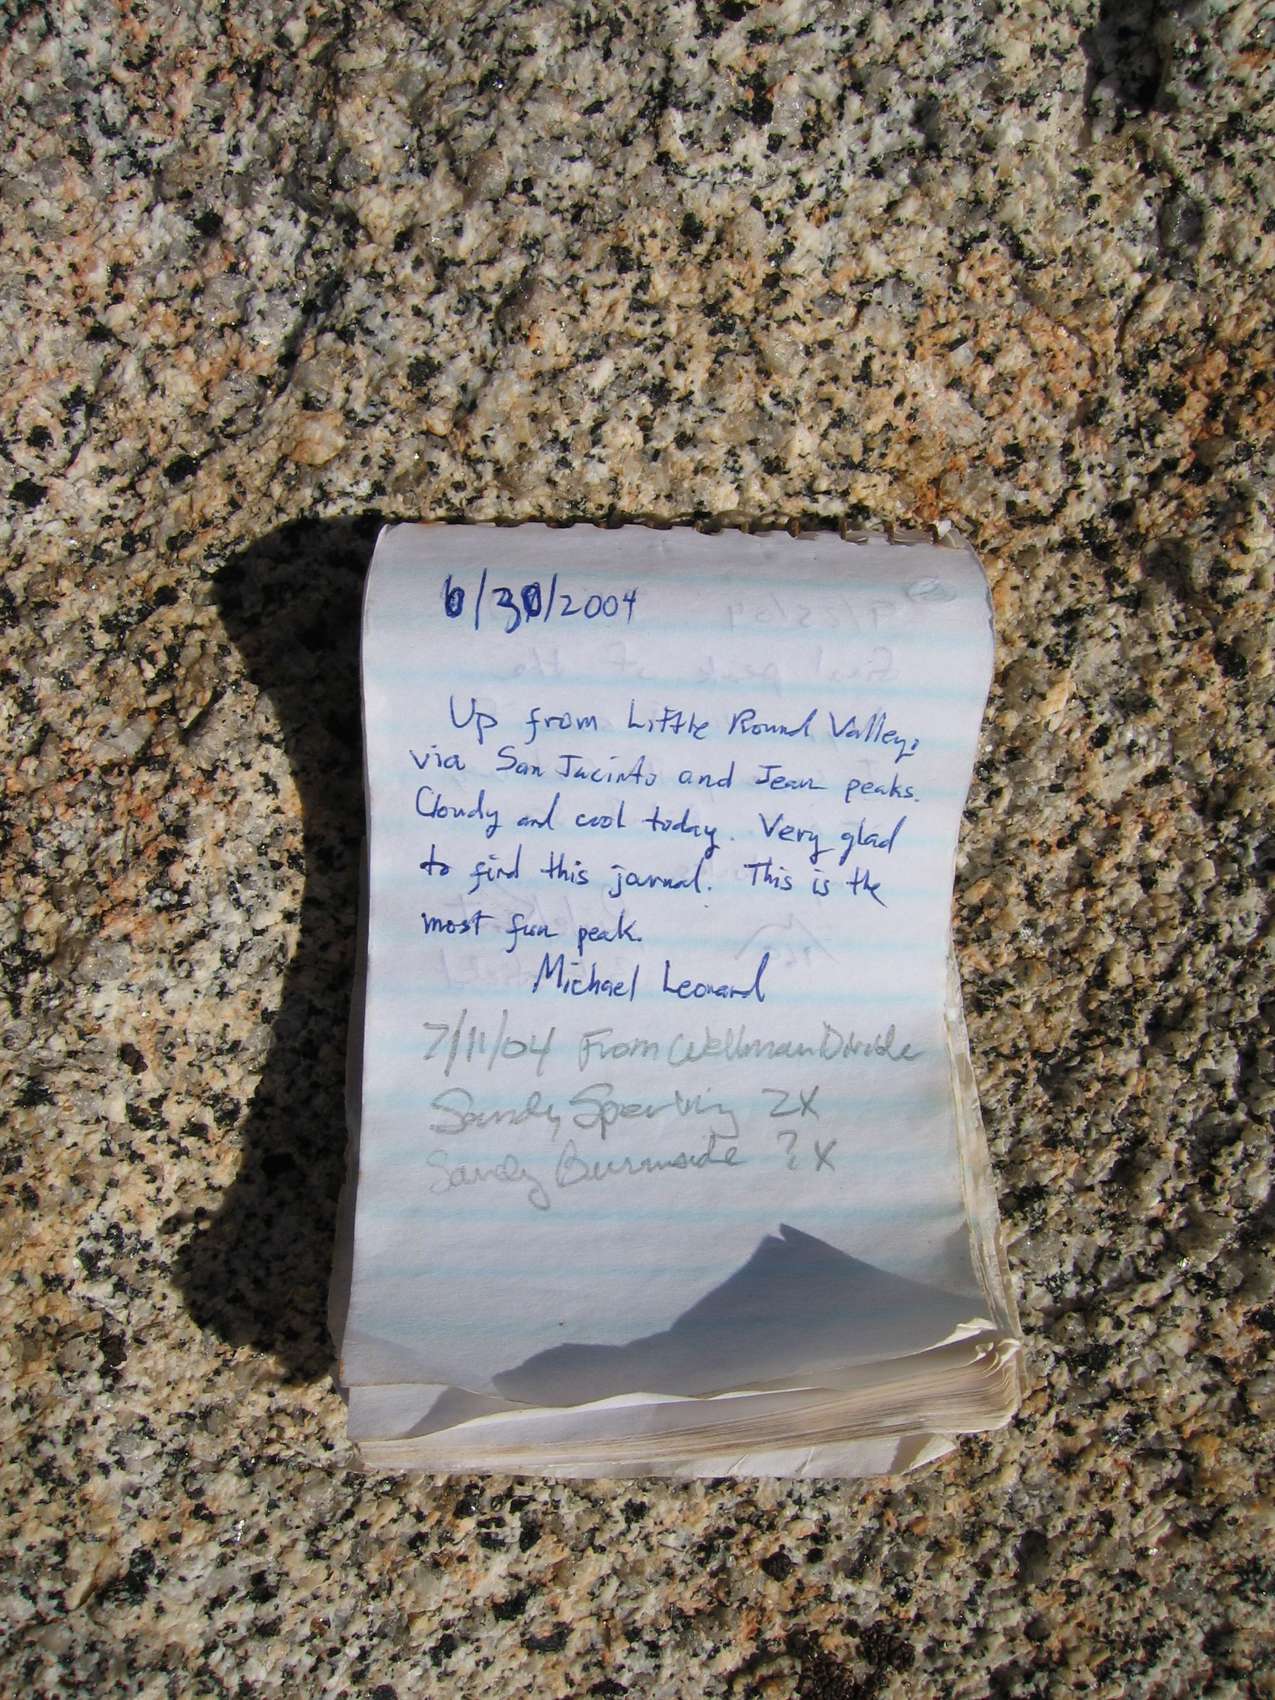 6/30/2004
Up from Little Round Valley,
via San Jacinto and Jean peaks.
Cloudy and cool today. Very glad
to find this journal. This is the
most fun peak.
Michael Leonard
7/11/04 From Wellman Divide
Sandy Sperling 2X
Sandy Burnside ?X